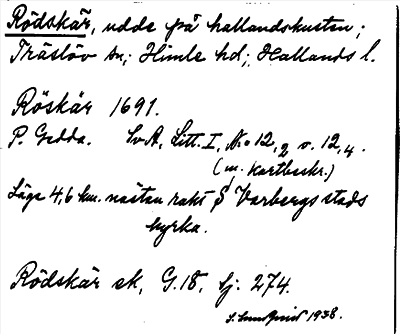 Rödskär, udde på hallandskusten;
Träslöv sn; Himle hd; Hallands l.
Röskär 1691.
P. Gedda. SvA, Litt. I, No 12,2 o. 12,4.
(m. kartbeskr.)
Läge 4,6 km. nästan rakt S Varbergs stads
kyrka.
Rödskär sk, G.18, Sj. 274.
1938.